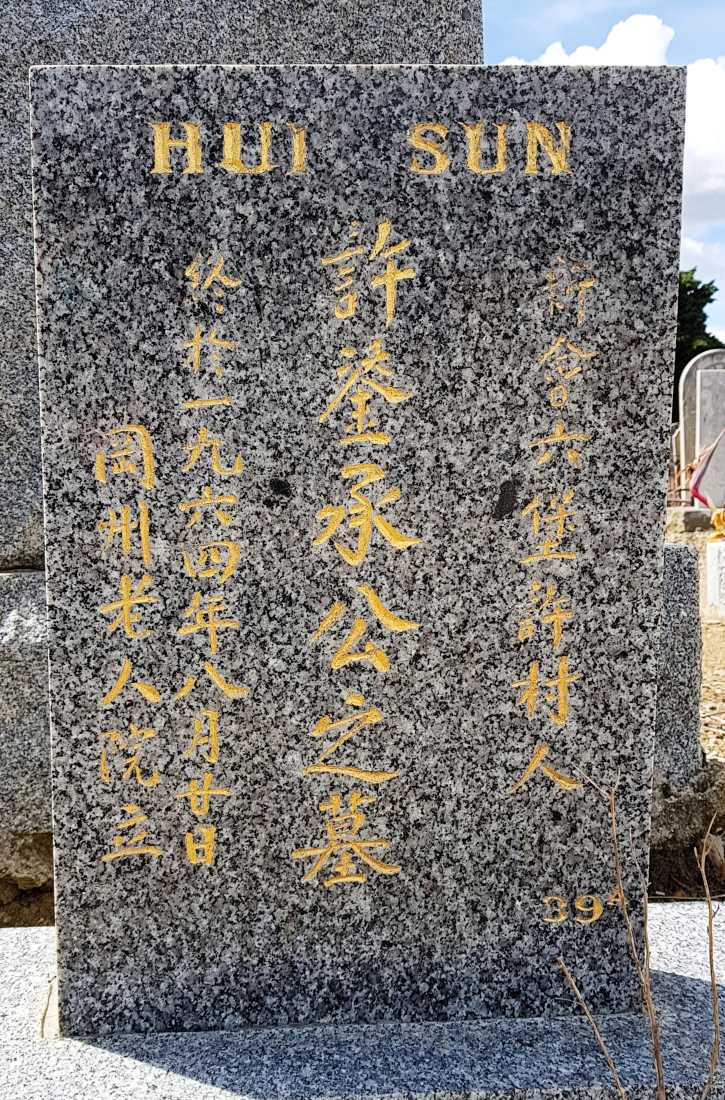 HUI SUN
新會六堡許村人
許鎏承公之墓
終於一九六四年八月廿日
岡州老人院立
39A